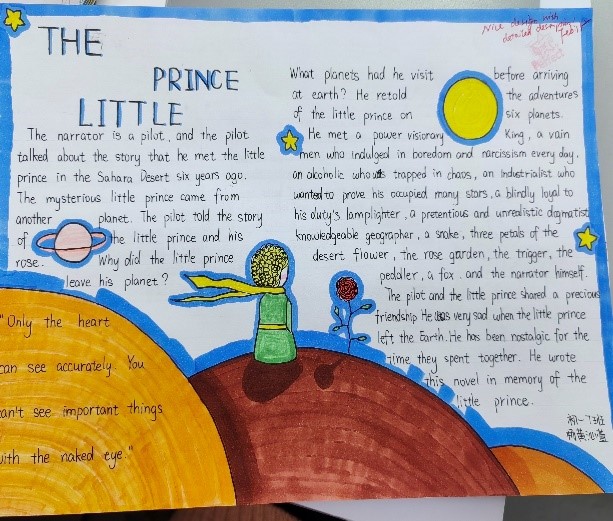 THE
PRINCE
LITTLE
The narrator is a pilot, and the pilot
talked about the story that he met the little
prince in the Sahara Desert six years ago.
The mysterious little prince came from
another planet. The pilot told the story
of the little prince and his
rose. Why did the little prince
leave his planet?
"Only the heart
can see accurately. You
can't see important things
with the naked eye."
Nice design with
detailed
What planets had he visit before arriving
at earth? He retold the adventures
of the little prince on six planets.
He met a power visionary King, a vain
men who indulged in boredom and narcissism every day,
an alcoholic who was trapped in chaos, an industrialist who
wanted to prove his occupied many stars, a blindly loyal to
his duty's lamplighter, a pretentious and unrealistic dogmatist
knowledgeable geographer, a snake, three petals of the
desert flower, the rose garden, the trigger, the
pedaller, a fox. and the narrator himself.
The pilot and the little prince shared a precious
friendship. He was very sad when the little prince
left the Earth. He has been nostalgic for the
time they spent together. He wrote
this novel in memory of the
little prince.
初一7班